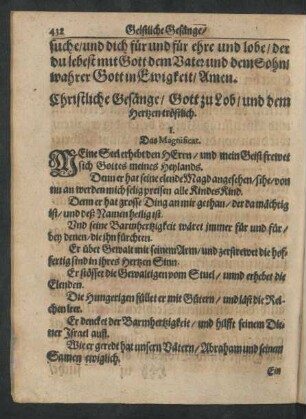 432 Geistliche Gesänge/
suche/und dich für und für ehre und lobe/der
du lebest mit Gott dem Vater und dem Sohn/
wahrer Gott in Ewigkeit/Amen.
Christliche Gesänge/Gott zu Lob/und dem
Hertzen tröstlich.
I.
Das Magnificat.
MEine Seel erhebt den HErrn/und mein Geist frewet
sich Gottes meines Heylands.
Denn er hat seine elende Magd angesehen/sihe/von
nu an werden mich selig preisen alle Kindes Kind.
Denn er hat grosse Ding an mir gethan/der da mächtig
ist/und deß Namen heilig ist.
Und seine Barmhertzigkeit wäret immer für und für/
bey denen/die ihn fürchten.
Er über Gewalt mit seinem Arm/und zerstrewet die hof-
fertig sind in ihres Hertzen Sinn.
Er stösset die Gewaltigen vom Stuel/und erhebet die
Elenden.
Die Hungerigen füllet er mit Gütern/und läst die Rei-
chen leer.
Er dencket der Barmhertzigkeit/und hilfft seinem Die-
ner Israel auff.
Wie er geredt hat unsern Vätern/Abraham und seinem
Samen ewiglich.
Ein